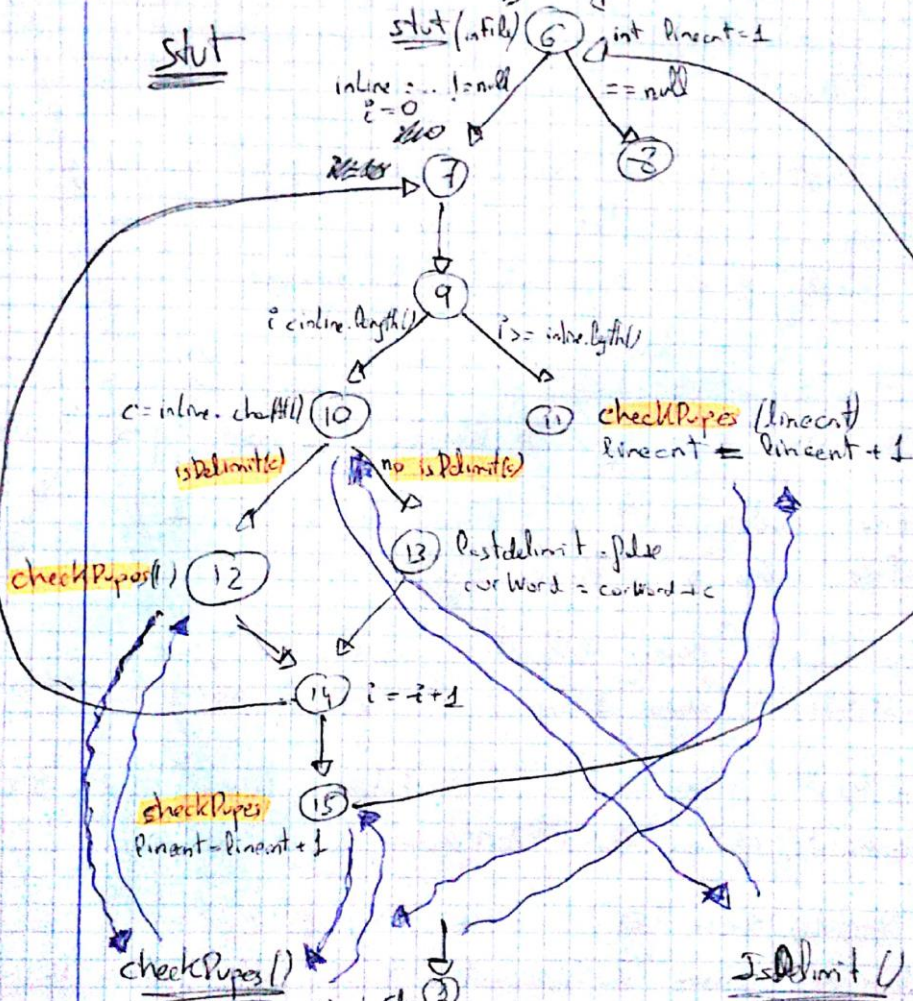 Stut
stut (inFile) 6 int linecnt = 1
inline = ... != null
== null
i = 0
7
8
9
i < inline.length()
i >= inline.lgth()
c = inline. charAt() 10
11 checkDupes (linecnt)
linecnt = linecnt + 1
isDelimit(c)
no isDelimit(c)
checkDupes(l.) 12
13 lastdelimit = false
curWord = curWord + c
14 i = i + 1
checkDupes 15
linecnt = linecnt + 1
checkDupes ()
IsDelimit ()